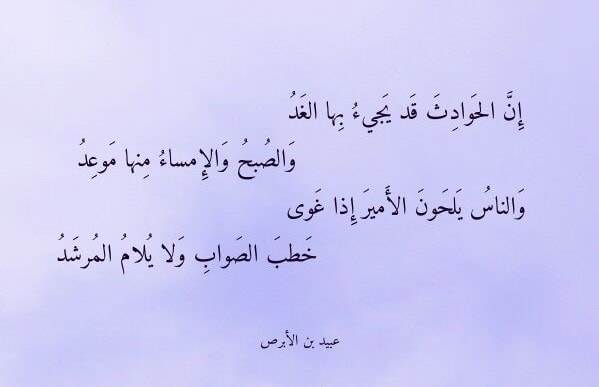 إِنَّ الحَوادِثَ قَد يَجيءُ بِها الغَدُ
وَالصُبحُ وَالإِمساءُ مِنها مَوعِدُ
وَالناسُ يَلحَونَ الأَميرَ إِذا غَوى
خَطبَ الصَوابِ وَلا يُلامُ المُرشَدُ
عبيد بن الأبرص